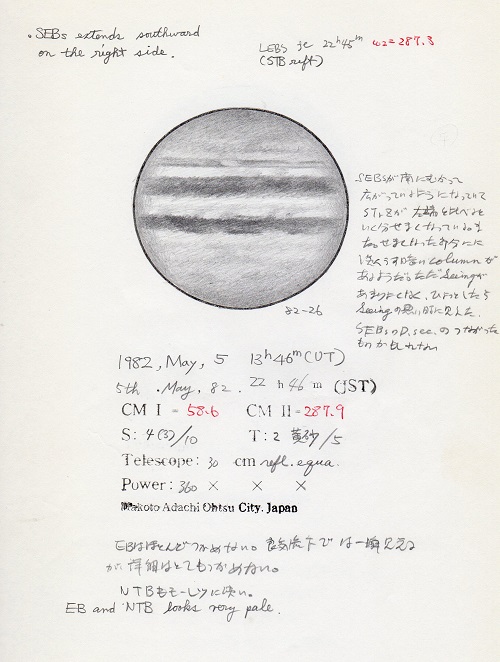 . SEBs extends southward
on the right side.
LEBS je 22h45m ω2=287.3
(STB rift)
SEBsが南にむかって
広がっているようになっていて
STrZが
いく分せまくなっている。
column が
ようだ。ただSeeingが
あまりよくなく、ひょっとしたら
Seeingの悪い時に見えた
SEBsのD. sec. のつながった
ものかもしれない
82-26
1982, May, 5 13h46m (UT)
5th. May, 82. 22h46m (JST)
CM I = 58.6 CM II = 287.9
S: 4(3)/10 T: 2 黄砂/5
Telescope: 30 cm refl. equa.
Power: 360 × × ×
Makoto Adachi Ohtsu City. Japan
EBはほとんどつかめない。良気流下では一瞬見える
が、詳細はとてもつかめない。
NTBもモーレツに淡い。
EB and NTB looks very pale.